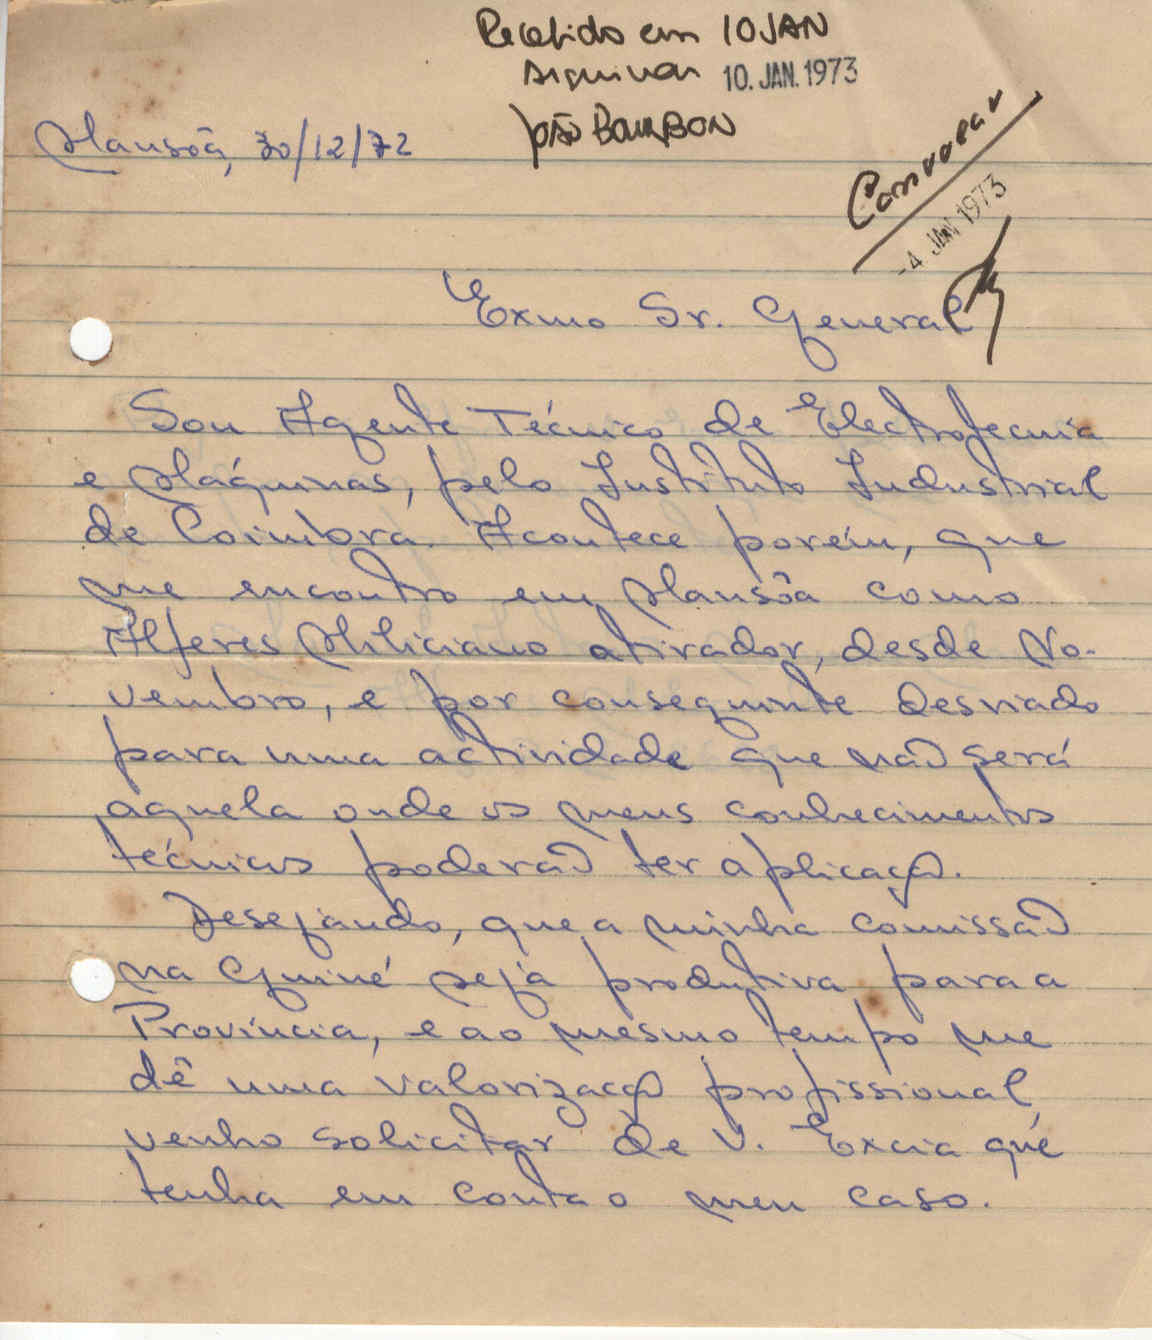 Recebido em 10 JAN
Arquivar 10. JAN. 1973
João BOURBON
Mansôa, 30/12/72
Conversar
-4 JAN 1973
Exmo Sr. General
Sou Agente Técnico de Electrotecnia
e Máquinas, pelo Instituto Industrial
de Coimbra. Acontece porém, que
me encontro em Mansôa como
Alferes Miliciano atirador, desde No-
vembro, e por conseguinte desviado
para uma actividade que não será
aquela onde os meus conhecimentos
técnicos poderão ter aplicação.
Desejando, que a minha comissão
na Guiné seja produtiva para a
Província, e ao mesmo tempo me
dê uma valorização profissional,
venho solicitar de V. Excia que
tenha em conta o meu caso.